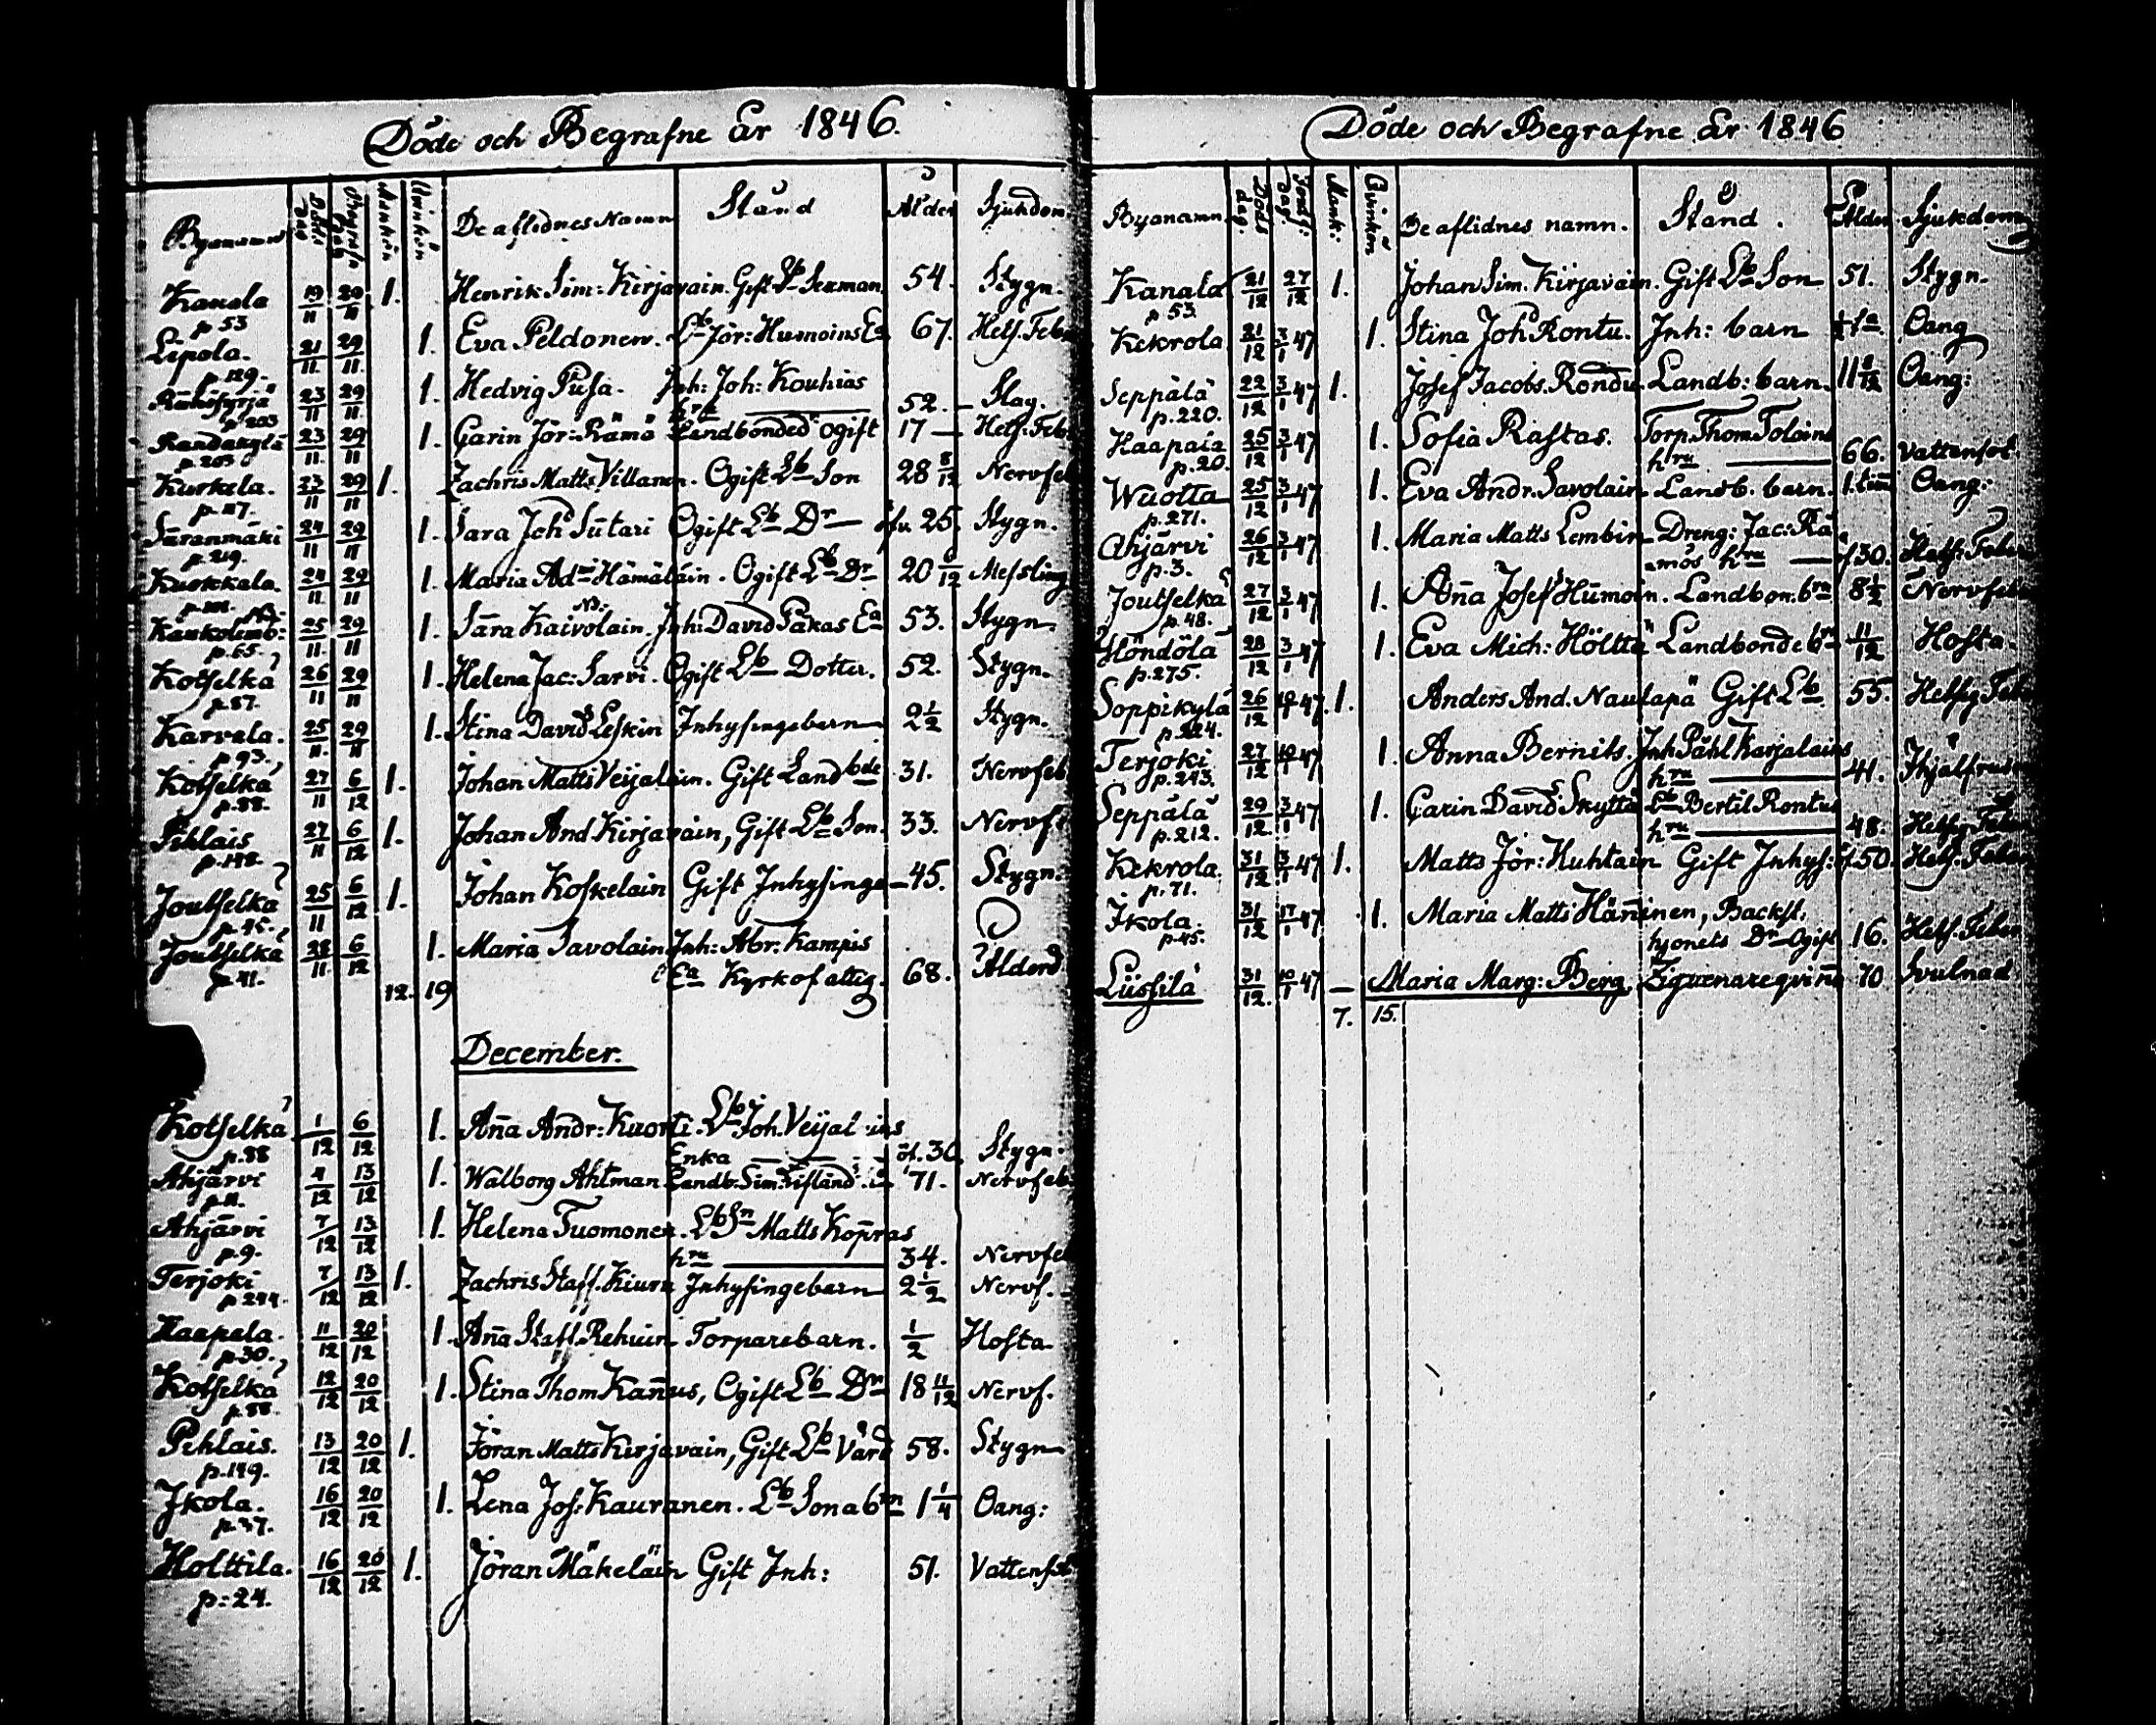 Döde och Begrafne År 1846.
Byanamn Döds Dag Begrafn Dag Mankön Qvinkön De aflidnes Namn Stånd Ålder Sjukdom
Kanala 19/11 29/11 1. Henrik Sim: Kirjavain. Gift Lb Sexman 54. Stygn.
p 53
Lepola. 21/11 29/11 1. Eva Peldonen. Lb Jör: Humoins Ea 67. Hets. Feb
p. 129.
23/11 29/11 1. Hedvig Pusa. Inh: Joh: Kouhias
p 203 hru 52. Slag.
Randakylä 23/11 29/11 1. Carin Jör: Rämä Landbonded ogift 17 Hets. Feb.
p. 203
Kurkela. 23/11 29/11 1. Zachris Matts Villanen. Ogift Lb Son 28 8/12 Nervfeb
p. 117.
Säranmäki 24/11 29/11 1. Sara Joh Sutari Ogift Lb Dr öfv. 25. Stygn.
p. 219.
Kurkkala. 24/11 29/11 1. Maria Adm Hämäläin. Ogift Lb Dr 20 6/12 Messling
Kaukolemb: 25/11 29/11 1. Sara Kaivolain. Inh: David Pakas Ea 53. Stygn.
p. 65.
Kotselkä 26/11 29/11 1. Helena Jac: Sarvi. Ogift Lb Dotter. 52. Stygn.
p. 87.
Karvela. 25/11 29/11 1. Stina David Leskin Inhysingebarn 2 1/2 Stygn.
p 93.
Kotselkä 27/11 6/12 1. Johan Matts Veijalain. Gift Landbde 31. Nervfeb
p. 88.
Pihlais 27/11 6/12 1. Johan And Kirjavain, Gift Lb Son. 33. Nervf
p. 148.
Joutselkä 25/11 6/12 1. Johan Koskelain Gift Inhysinge 45. Stygn.
p. 45.
Joutselkä 28/11 6/12 1. Maria Savolain Inh: Abr: Kampis
p. 41. Ea Kyrkofattig. 68. Ålderd.
12. 19
December.
Kotselkä 1/12 6/12 1. Anna Andr: Kuorti. Lb Joh. Veijal ins
p. 88 Enka öf. 30. Stygn.
Ahjärvi 4/12 13/12 1. Walborg Ahtman Landb. Sim. 71. Nervfeb.
p. 11.
Ahjärvi 7/12 13/12 1. Helena Tuomonen. Lb Sn Matts Kopras
p. 9. hru 34. Nervfeb
Terjoki 7/12 13/12 1. Zachris Staff. Kiuru Inhysingebarn 2 1/2 Nervf.
p 244.
Haapala. 11/12 20/12 1. Anna Staff. Rehuin Torparebarn. 1/2 Hosta.
p. 30.
Kotselkä 12/12 20/12 1. Stina Thom Kannus, Ogift Lb Dr 18 11/12 Nervf.
p. 88.
Pihlais. 13/12 20/12 1. Jöran Matts Kirjavain, Gift Lb Värd 58. Stygn
p. 149.
Ikola. 16/12 20/12 1. Lena Jos: Kauranen. Lb Sonabrn 1 1/4 Oang:
p. 37.
Holttila. 16/12 20/12 1. Jöran Mäkeläin Gift Inh: 51. Vattensot
p: 24.
Döde och Begrafne År 1846
Byanamn Döds dag. Jordf: Dag. Mank: Qvinkön De aflidnes namn. Stånd. Ålder Sjukdom
Kanala 21/12 27/12 1. Johan Sim. Kirjavain. Gift Lb Son 51. Stygn.
p. 53.
Kekrola. 21/12 3/1 47 1. Stina Joh Rontu. Inh: barn Oang
Seppälä 22/12 3/1 47 1. Josef Jacobs. Rondu Landb: barn. 11 8/12 Oang:
p. 220.
Haapala 25/12 3/1 47 1. Sofia Rastas. Torp. Thom Toloins
p. 20. hru 66. Vattensot.
Wuotta 25/12 3/1 47 1. Eva Andr. Savolain Landb. barn. 1. tim Oang:
p. 271.
Ahjärvi 26/12 3/1 47 1. Maria Matts Lembin Dreng: Jac: Rä
p. 3. mös hru öf 30. Hets. Feber
Joutselkä 27/12 3/1 47 1. Anna Josef Humoin. Landbon. brn 8 1/2 Nervfeb
p. 48.
Höndölä 28/12 3/1 47 1. Eva Mich: Hölttä Landbonde brn 11/12 Hosta.
p. 275.
Soppikylä 26/12 10/1 47. 1. Anders And. Naulapä Gift Lb 55. Hetsg Feb
p. 224.
Terjoki 27/12 10/1 47 1. Anna Bernits. Inh Påhl Karjalains
p. 243. hru 41. Ihjälfrus
Seppälä 29/12. 3/1 47 1. Carin David Skyttä Lb Bertil Rontus
p. 212. hru 48. Hetsg Feber
Kekrola. 31/12 3/1 47 1. Matts Jör: Huhtain Gift Inhys: öf. 50. Hets. Feber
p. 71.
Ikola. 31/12 17/1 47 1. Maria Matts Häninen, Backst.
p. 45. hjonets Dr Ogift 16. Hets. Feber
Liissilä 31/12. 10/1 47 — Maria Marg: Berg, Zigenareqvinn 70 Svulnad
7. 15.